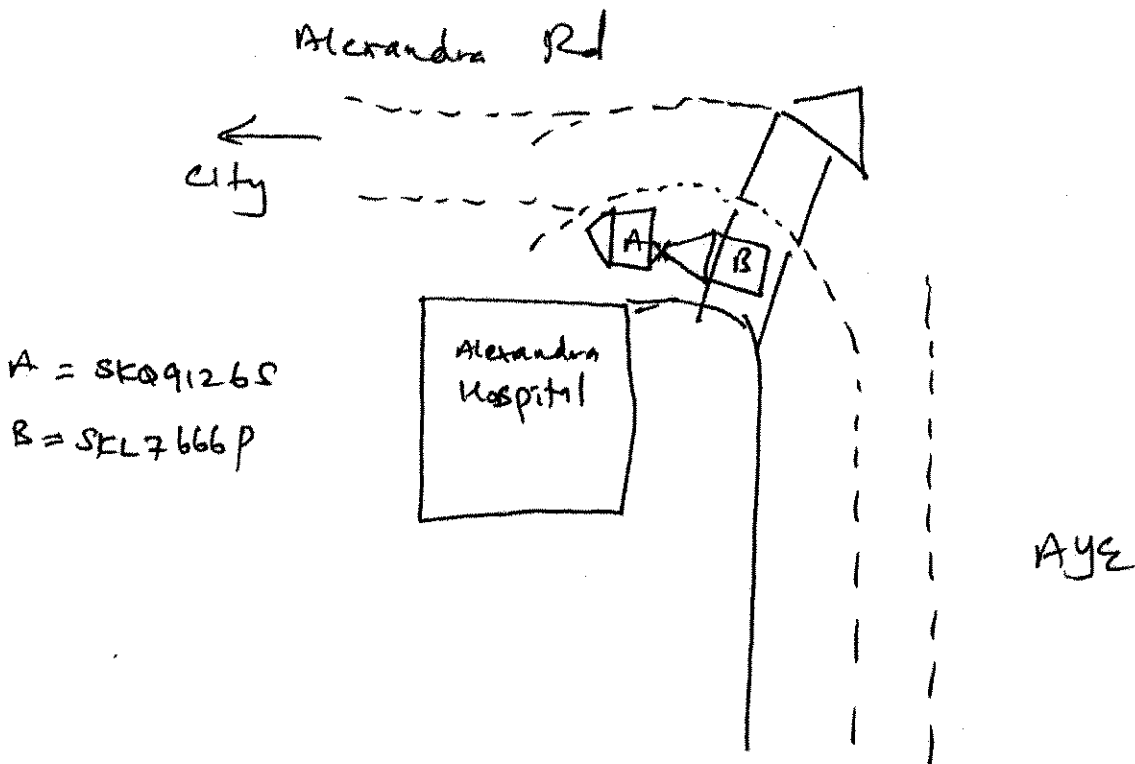 Alexandra Rd
City
A
B
Alexandra
Hospital
A = SKQ9126S
B = SKL7666P
AYE